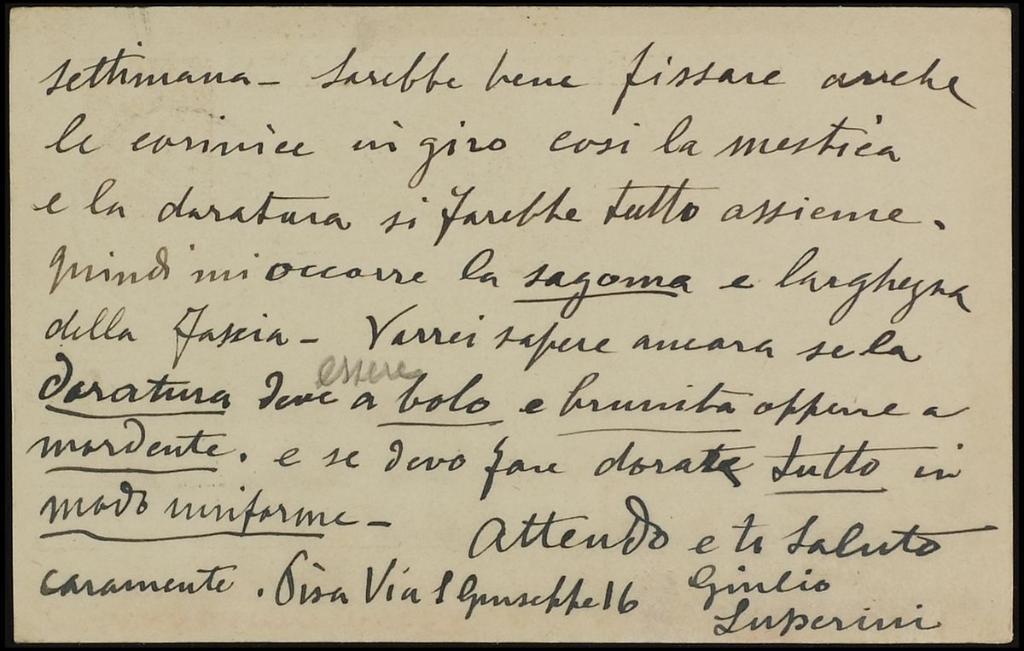 settimana – Sarebbe bene fissare anche
le cornice in giro cosi la mestica
e la doratura si farebbe tutto assieme.
quindi mi occorre la sagoma e larghezza
della fascia – Vorrei sapere ancora se la
doratura deve essere a bolo e brunita oppure a
mordente. e se devo fare dorate tutto in
modo uniforme –
Attendo e ti saluto
caramente. Pisa Via S Giuseppe 16
Giulio
Luperini